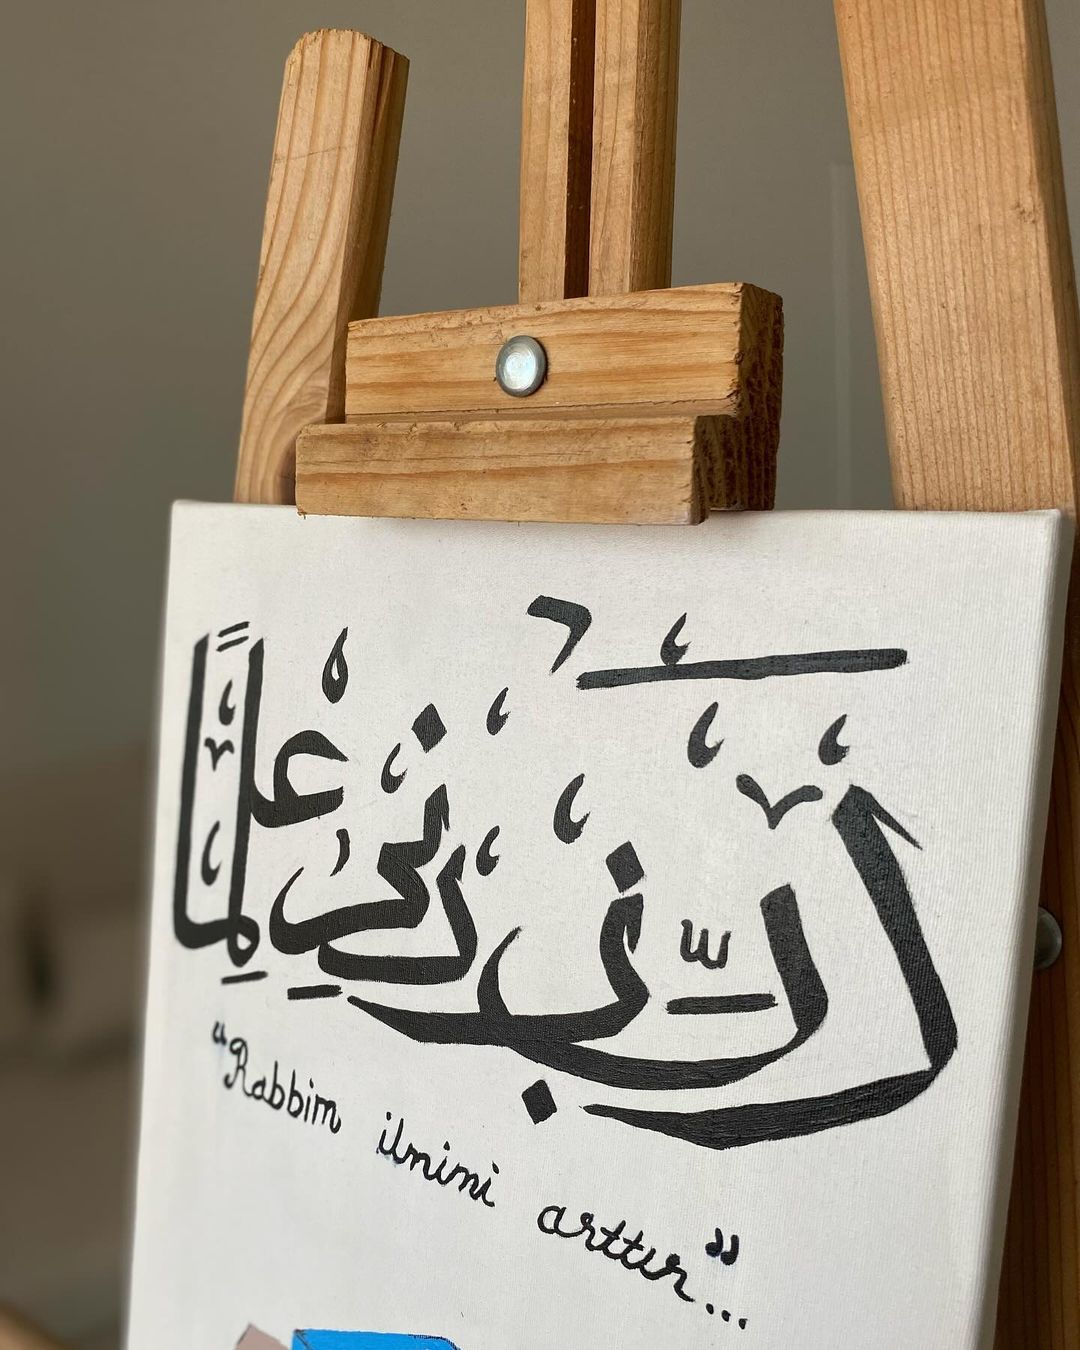 رَبِّ زِدْنِي عِلْمًا
"Rabbim ilmimi arttır"...